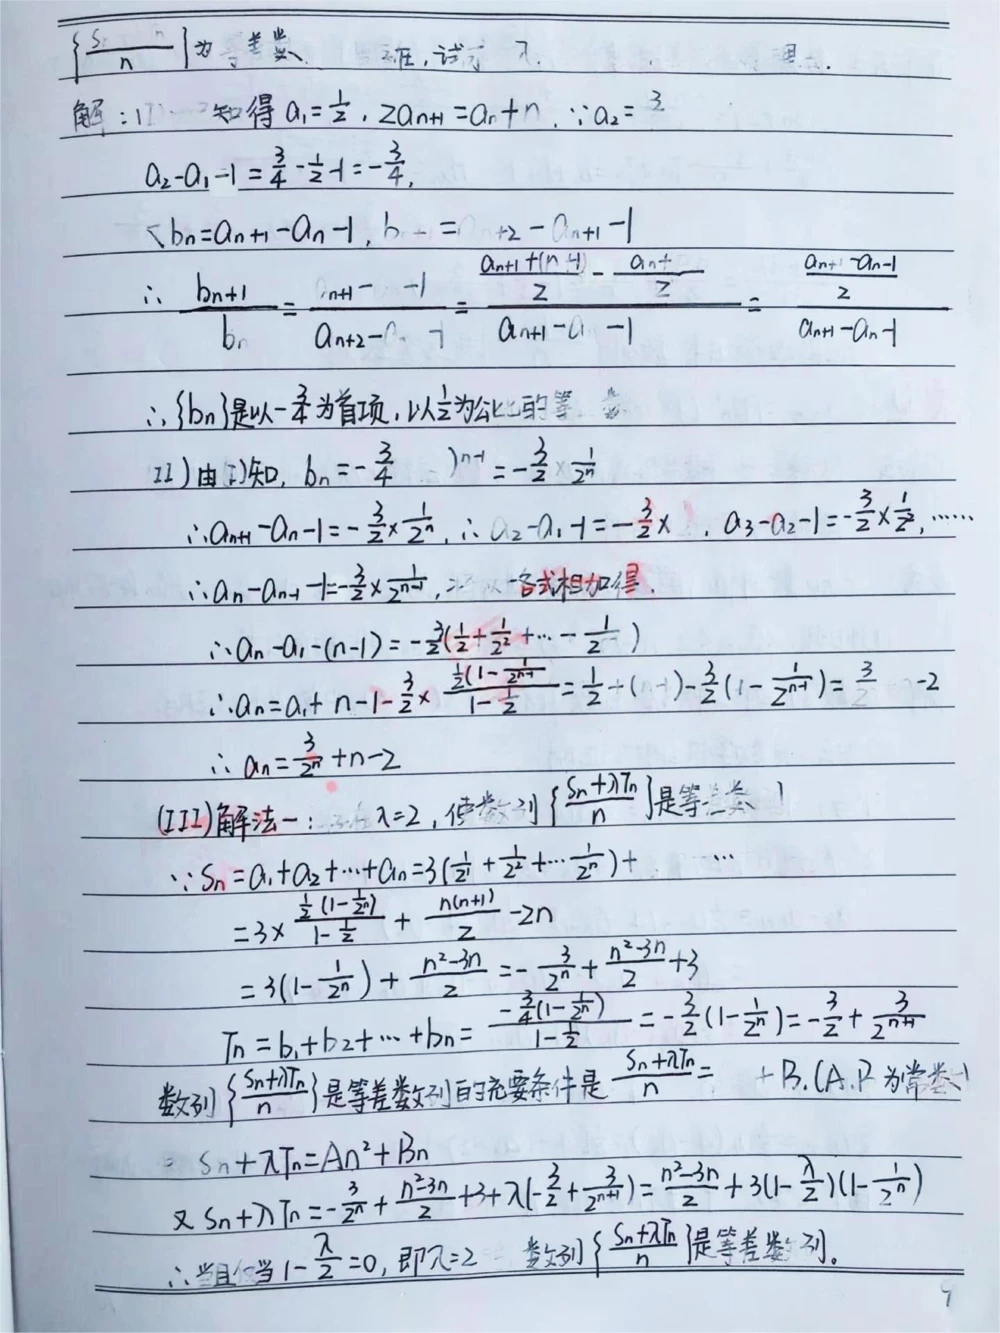 { n / n }为等差数 , 试求 λ.
解: (I) 知得 a₁=1/2, 2aₙ₊₁=aₙ+n, ∵a₂=3/
a₂-a₁-1=3/4-1/2-1=-3/4,
bₙ=aₙ₊₁-aₙ-1, b =aₙ₊₂-aₙ₊₁-1
∴ bₙ₊₁/bₙ = (aₙ₊₁- -1)/(aₙ₊₂-a -1) = ((aₙ₊₁+(n+1))/2-(aₙ+ )/2)/(aₙ₊₁-aₙ-1) = ((aₙ₊₁-aₙ-1)/2)/(aₙ₊₁-aₙ-1)
∴{bₙ}是以-3/4为首项,以1/2为公比的等 数
II)由I)知, bₙ=-3/4 )ⁿ⁻¹=-3/2×1/2ⁿ
∴aₙ₊₁-aₙ-1=-3/2×1/2ⁿ, ∴a₂-a₁-1=-3/2× , a₃-a₂-1=-3/2×1/2², ……
∴aₙ-aₙ₋₁-1=3/2×1/2ⁿ⁻¹, 将以 各式相加得.
∴aₙ-a₁-(n-1)=-3/2(1/2+1/2²+…+1/2 )
∴aₙ=a₁+n-1-3/2×(1/2(1-1/2ⁿ⁻¹))/(1-1/2)=1/2+(n-1)-3/2(1-1/2ⁿ⁻¹)=3/2 -2
∴ aₙ=3/2ⁿ+n-2
(III)解法一: 存在λ=2, 使数列{(Sₙ+λTₙ)/n}是等差数
∵Sₙ=a₁+a₂+…+aₙ=3(1/2+1/2²+…1/2ⁿ)+ …
=3×(1/2(1-1/2ⁿ))/(1-1/2)+n(n+1)/2-2n
=3(1-1/2ⁿ)+(n²-3n)/2=-3/2ⁿ+(n²-3n)/2+3
Tₙ=b₁+b₂+…+bₙ=(-3/4(1-1/2ⁿ))/(1-1/2)=-3/2(1-1/2ⁿ)=-3/2+3/2ⁿ⁺¹
数列{(Sₙ+λTₙ)/n}是等差数列的充要条件是(Sₙ+λTₙ)/n= +B.(A.B为常数)
Sₙ+λTₙ=An²+Bn
又Sₙ+λTₙ=-3/2ⁿ+(n²-3n)/2+3+λ(-3/2+3/2ⁿ⁺¹)=(n²-3n)/2+3(1-λ/2)(1-1/2ⁿ)
∴当且仅当1-λ/2=0, 即λ=2 数列{(Sₙ+λTₙ)/n}是等差数列。
9